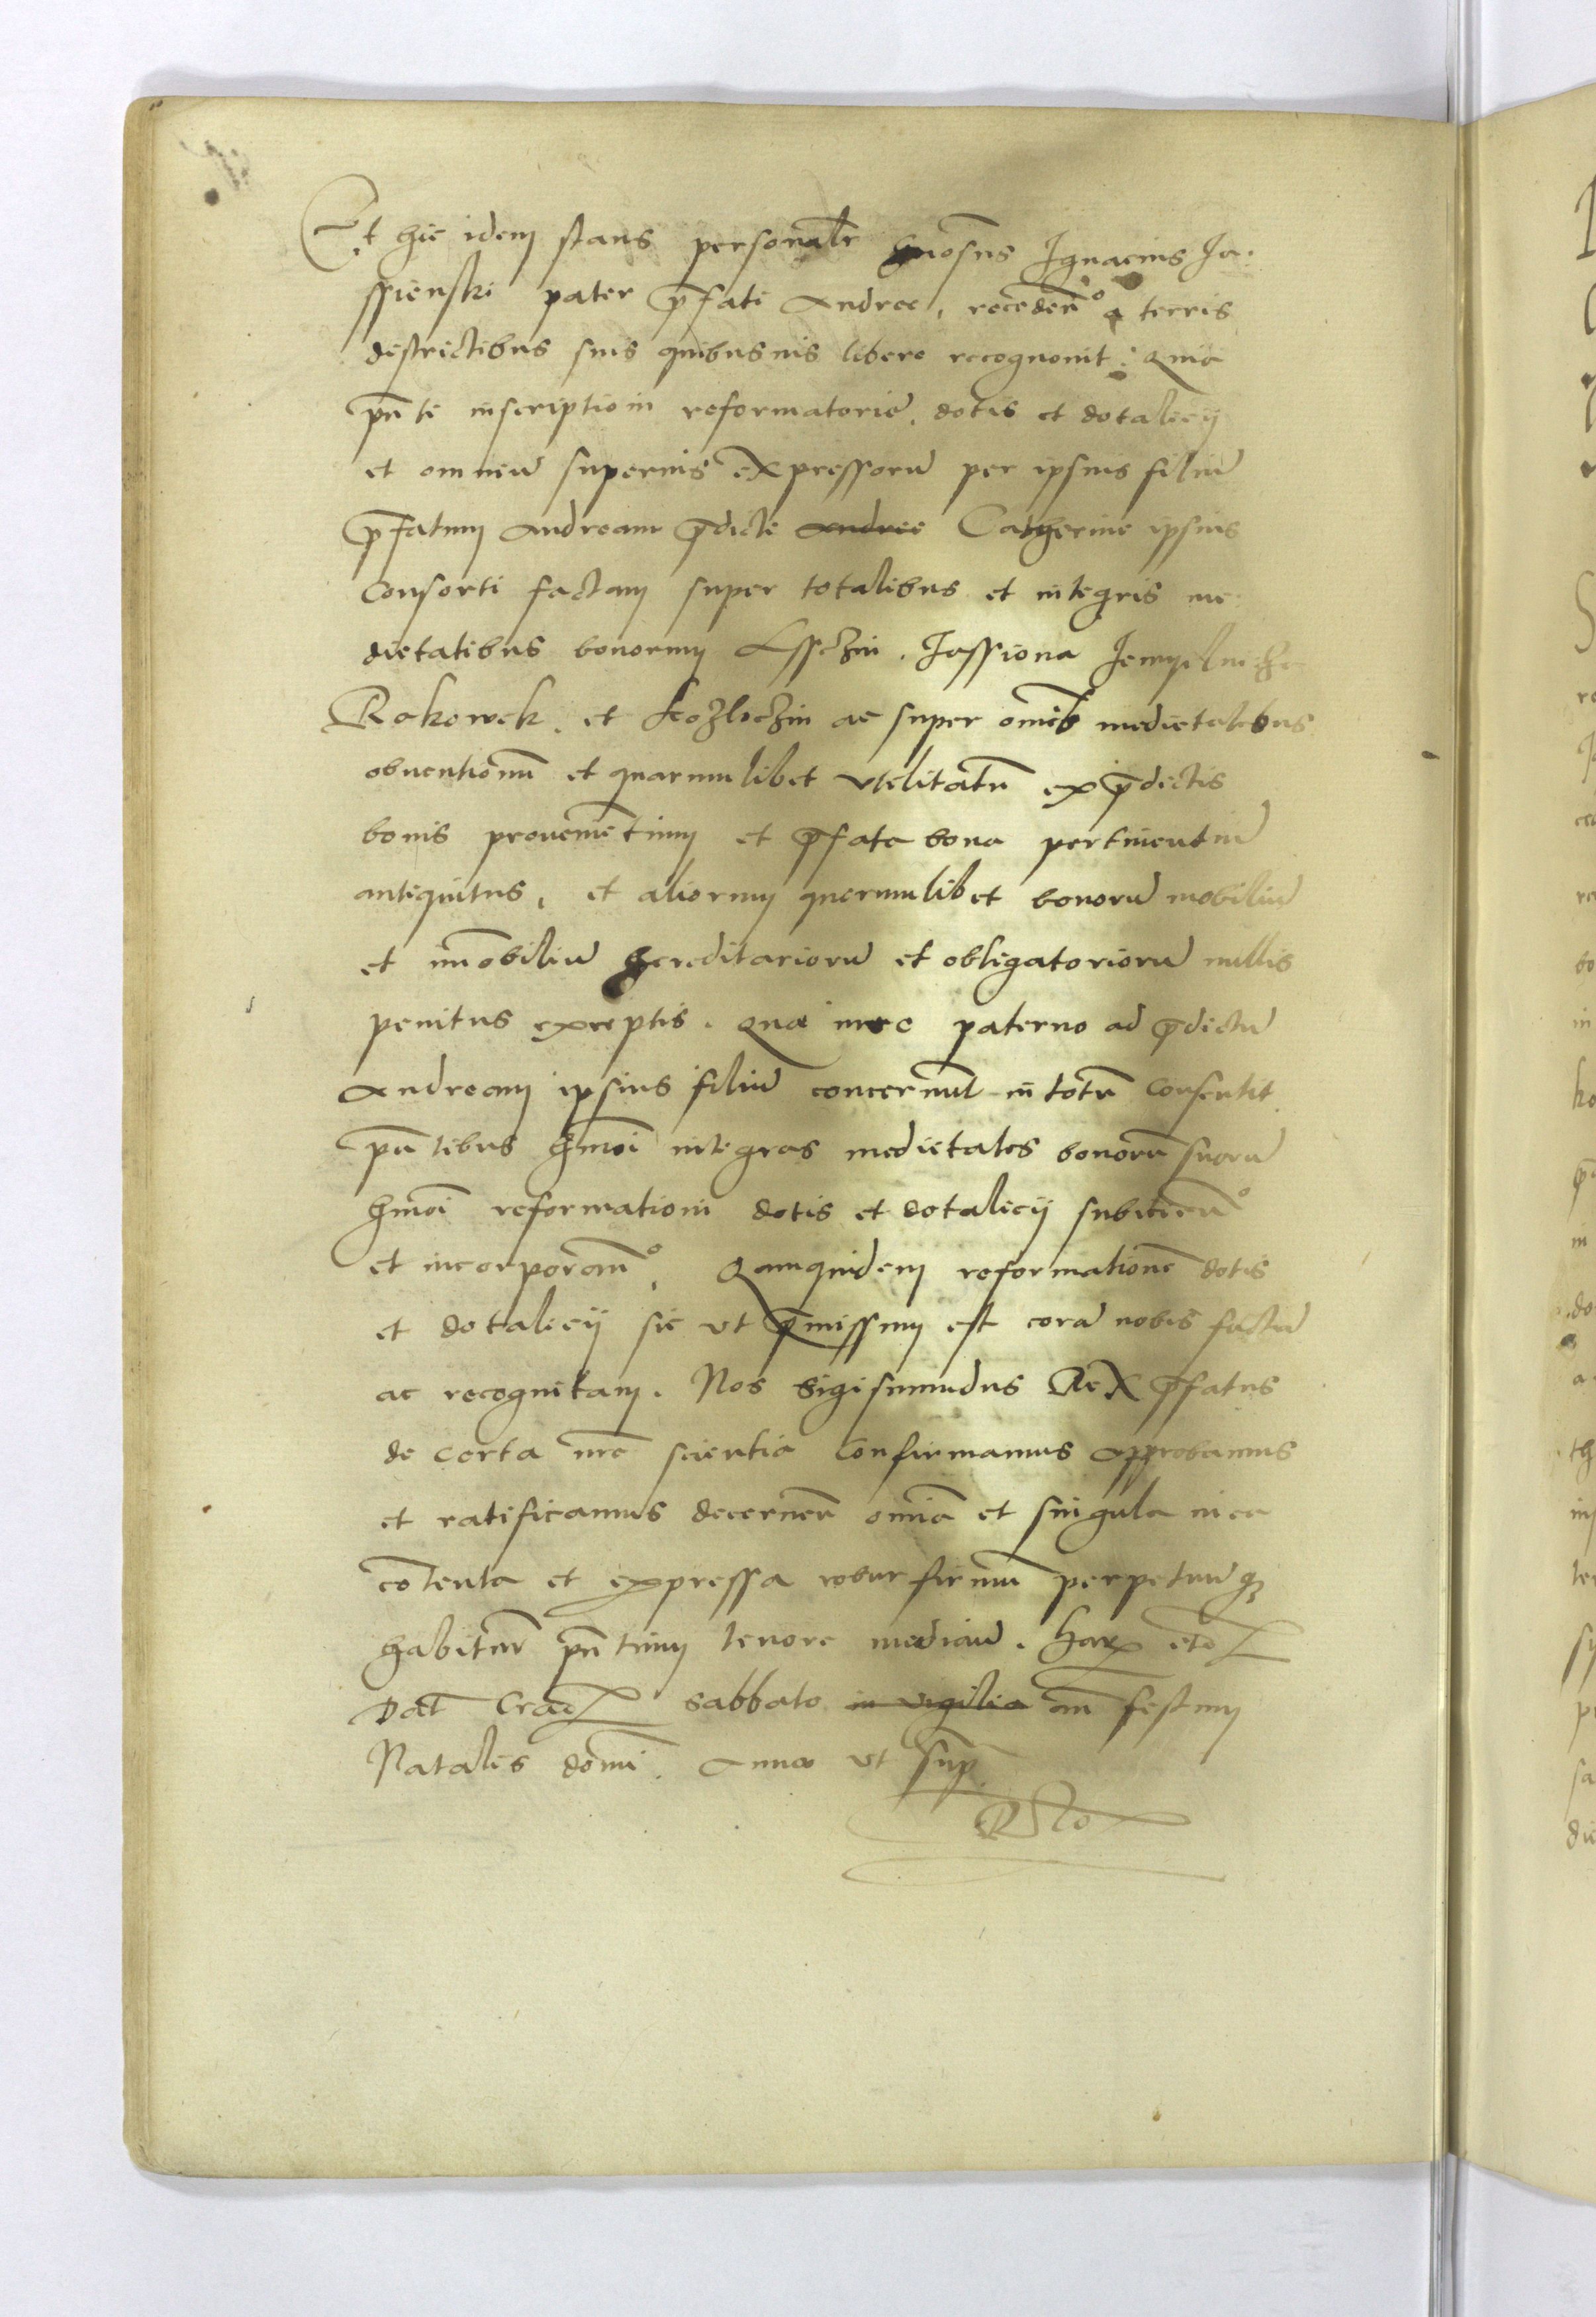 Et hic idem stans personalr̄ gn̄osus Ignacius Ja-
ssienski pater p̄fati Andree, recedeñº a terris
districtibus suis quibusuis libere recognouit: Quia
pñti inscriptioni reformatorie, dotis et dotalicij
et omniū superius expressorū per ipsius filiū
p̄fatum Andream p̄dicte Andree Catherine ipsius
consorti factam super totalibus et integris me-
dietatibus bonorum Lssczin, Jassiona
Rakowek, et Kozloczin ac super om̄ib medietatibus
obuentionū et quarumlibet vtilitatū ex p̄dictis
bonis proueniētium et p̄fata bona pertinentiū
antiquitus, et aliorum quorumlibet bonorū mobiliū
et im̄obiliū hereditariorū et obligatoriorū nullis
penitus exceptis. Quæ iure paterno ad p̄dictū
Andream ipsius filiū concernūt in totū consentit
pñtibus hmōi integras medietates bonorū suorū
hmōi reformationi dotis et dotalicij subiicieñº
et incorporañº. Quamquidem reformationē dotis
et dotalicij sic vt p̄missum est corā nobis factā
ac recognitam. Nos Sigismundus Rex p̄fatus
de certa nr̄a scientia confirmamus approbamus
et ratificamus decerneñ om̄ia et singula in ea
cōtenta et expressa robur firmū perpetuūqꝫ
habiturꝫ pñtium tenore mediañ. Harꝫ etc
Dat̄ Crac̄ sabbato in vigilia an̄ festum
Natalis domī. Anno vt sup̄